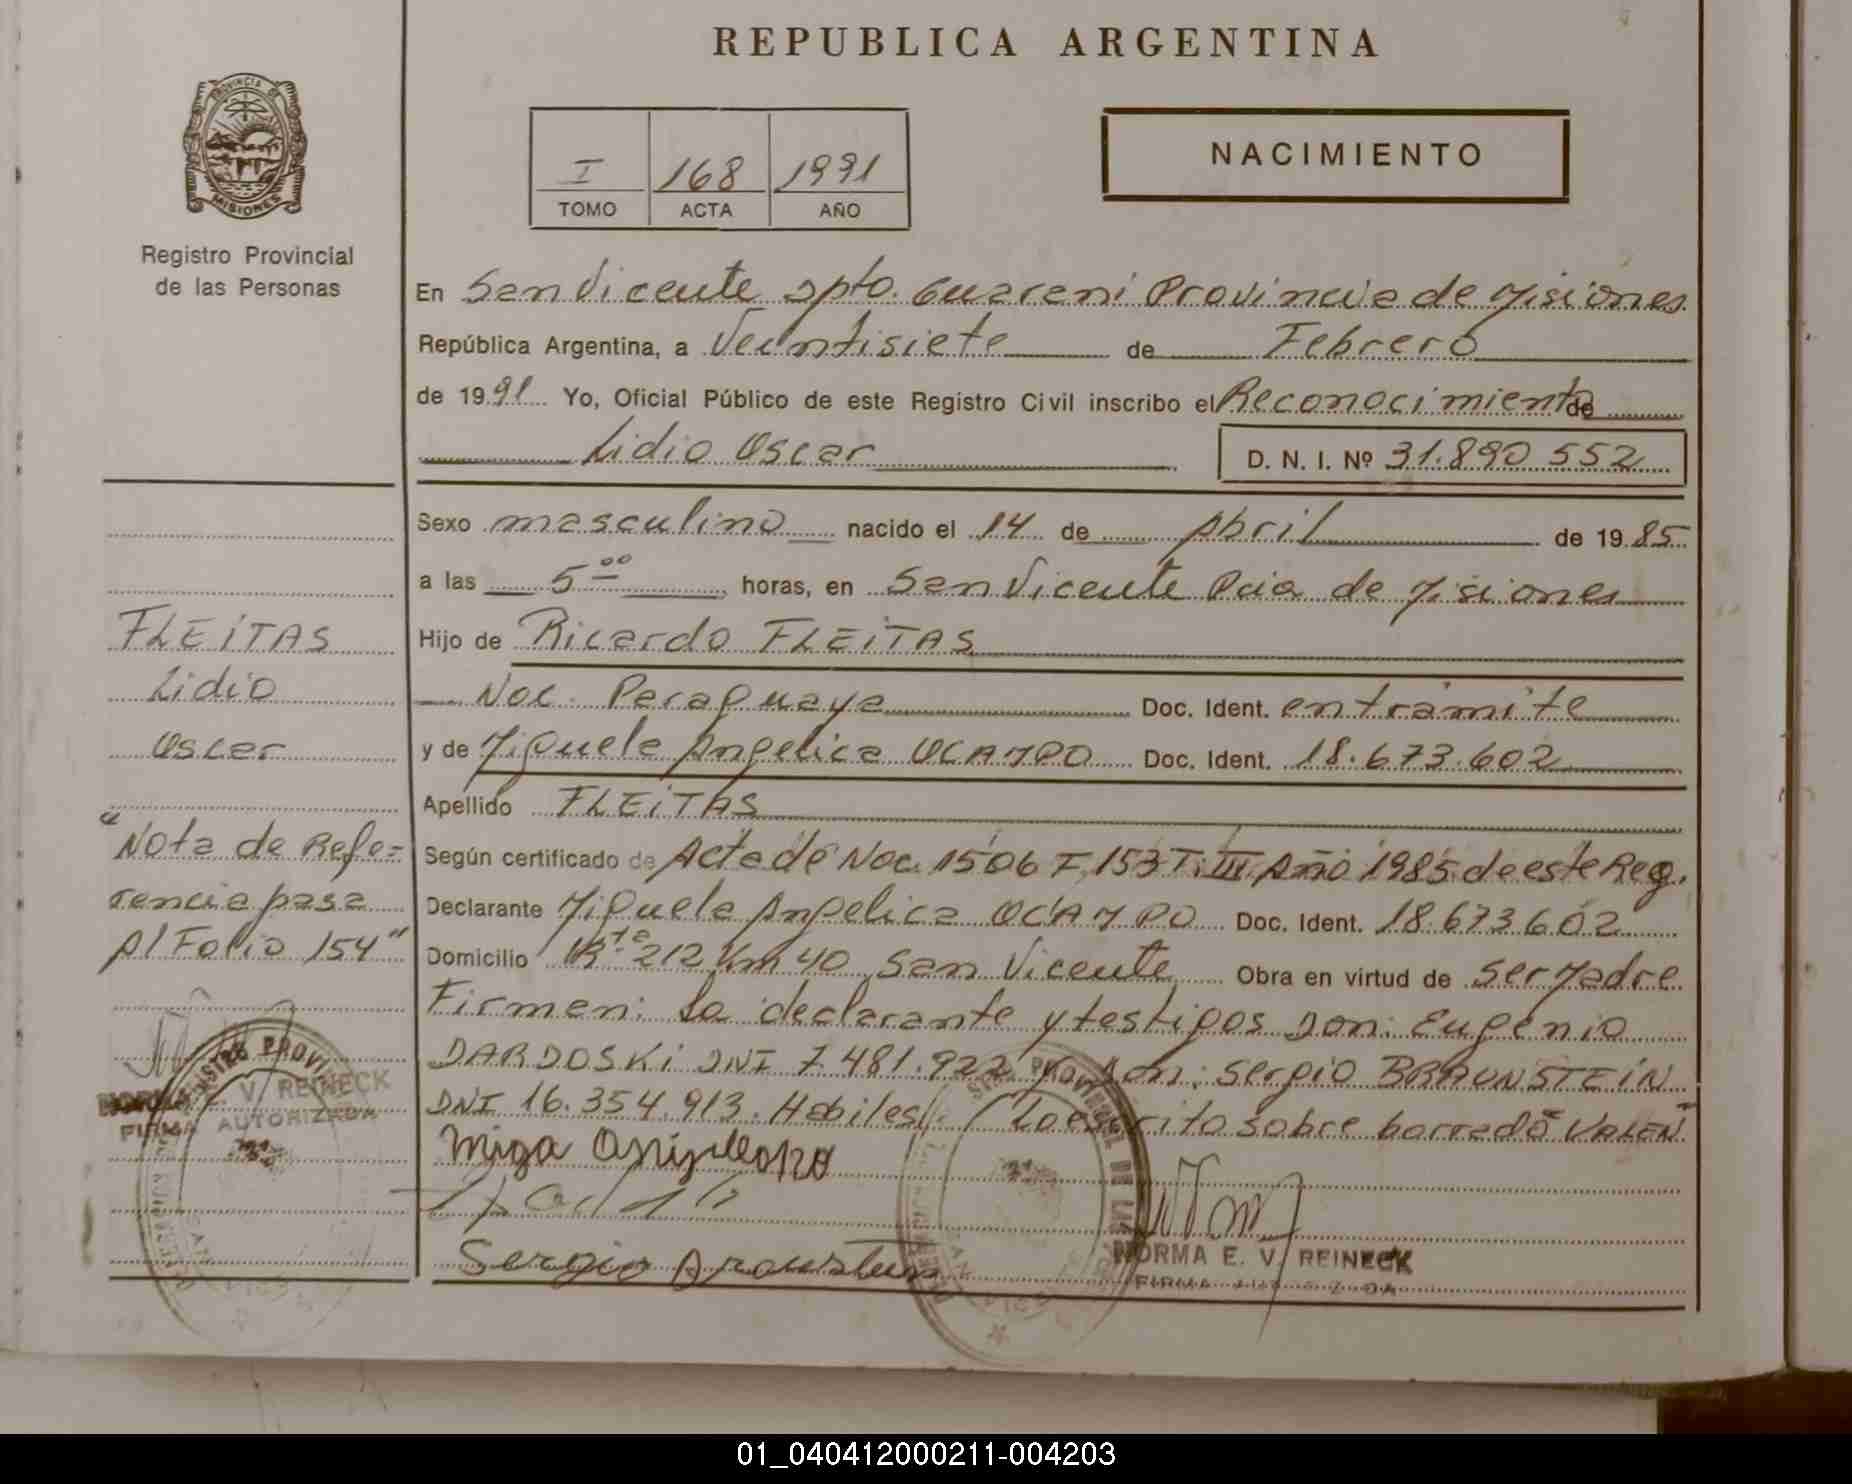 REPUBLICA ARGENTINA
PROVINCIA DE
MISIONES
Registro Provincial
de las Personas
I 168 1991
TOMO ACTA AÑO
NACIMIENTO
En San Vicente Dpto. Guarani Provincia de Misiones
República Argentina, a Veintisiete de Febrero
de 1991 Yo, Oficial Público de este Registro Civil inscribo el Reconocimiento de
Lidio Oscar D. N. I. Nº 31.890 552
Sexo masculino nacido el 14 de Abril de 1985
a las 5 00 horas, en San Vicente Pcia de Misiones
Hijo de Ricardo FLEITAS
Nac. Paraguaya Doc. Ident. en tramite
y de Miguela Angelica OCAMPO Doc. Ident. 18.673.602
Apellido FLEITAS
Según certificado de Acta de Nac. 1506 F. 153 T. III Año 1985 de este Reg.
Declarante Miguela Angelica OCAMPO Doc. Ident. 18.673602
Domicilio Rta 212 Km 40 San Vicente Obra en virtud de ser Madre
Firman: la declarante y testigos Don: Eugenio
DARDOSKI DNI 7.481.922 y Don: Sergio BRAUNSTEIN
DNI 16.354.913. Habiles/ Lo escrito sobre borrado "VALEN"
NORMA E. V. REINECK
FIRMA AUTORIZADA
FLEITAS
Lidio
Oscar
"Nota de Refe=
rencia pasa
Al Folio 154"
NORMA E. V. REINECK
FIRMA AUTORIZADA
01_040412000211-004203